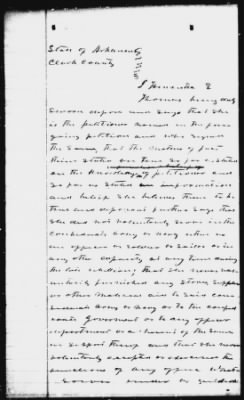 State of Arkansas
Clark County
I Amantha E
Thomas being duly
sworn depose and say that she
is the petitioner named in the fore
going petition and who signed
the same, that the matters of fact
therein stated are true so far as stated
on the knowledge of petitioner and
so far as stated on information
and belief she believes them to be
true and deponent further says that
she did not voluntarily serve in the
confederate army or navy either as
an officer or soldier or sailor or in
any other capacity at any time during
the late rebellion; that she never vol
untarily furnished any stores supplies
or other material aid to said con
federate army or navy or to the confed
erate Government or to any officer
department or adherent of the same
in support thereof and that she never
voluntarily accepted or exercised the
functions of any office whatsoever
under or yielded